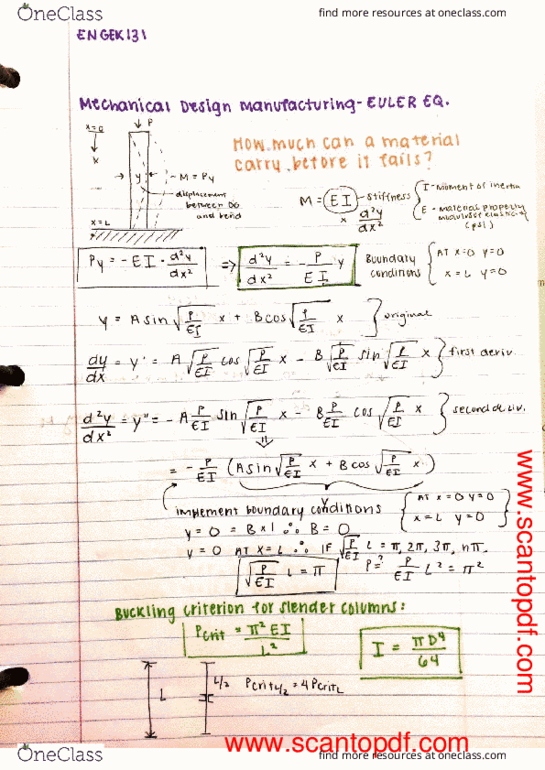 OneClass find more resources at oneclass.com
ENGEK131
Mechanical Design Manufacturing - EULER EQ.
x=0 P
How much can a material
carry before it fails?
x
y M = Py
displacement
between
and bend
x=L
M = EI - stiffness
x d²y/dx²
I - Moment of inertia
E - material property
(psi)
Py = -EI · d²y/dx² => d²y/dx² = - P/EI y
Boundary conditions { AT x=0 y=0
x=L y=0
y = A sin √(P/EI) x + B cos √(P/EI) x } original
dy/dx = y' = A √(P/EI) cos √(P/EI) x - B √(P/EI) sin √(P/EI) x } first deriv.
d²y/dx² = y" = -A P/EI sin √(P/EI) x - B P/EI cos √(P/EI) x } second deriv.
⇓
= - P/EI (A sin √(P/EI) x + B cos √(P/EI) x)
y
implement boundary conditions { AT x=0 y=0
x=L y=0 }
y = 0 = B×1 ∴ B = 0
y = 0 AT x=L ∴ IF √(P/EI) L = π, 2π, 3π, nπ.
√(P/EI) L = π P=? P/EI L² = π²
Buckling criterion for slender columns:
Pcrit = π² EI / L²
I = πD⁴/64
L L/2 Pcrit L/2 = 4 Pcrit L
www.scantopdf.com
www.scantopdf.com
OneClass find more resources at oneclass.com